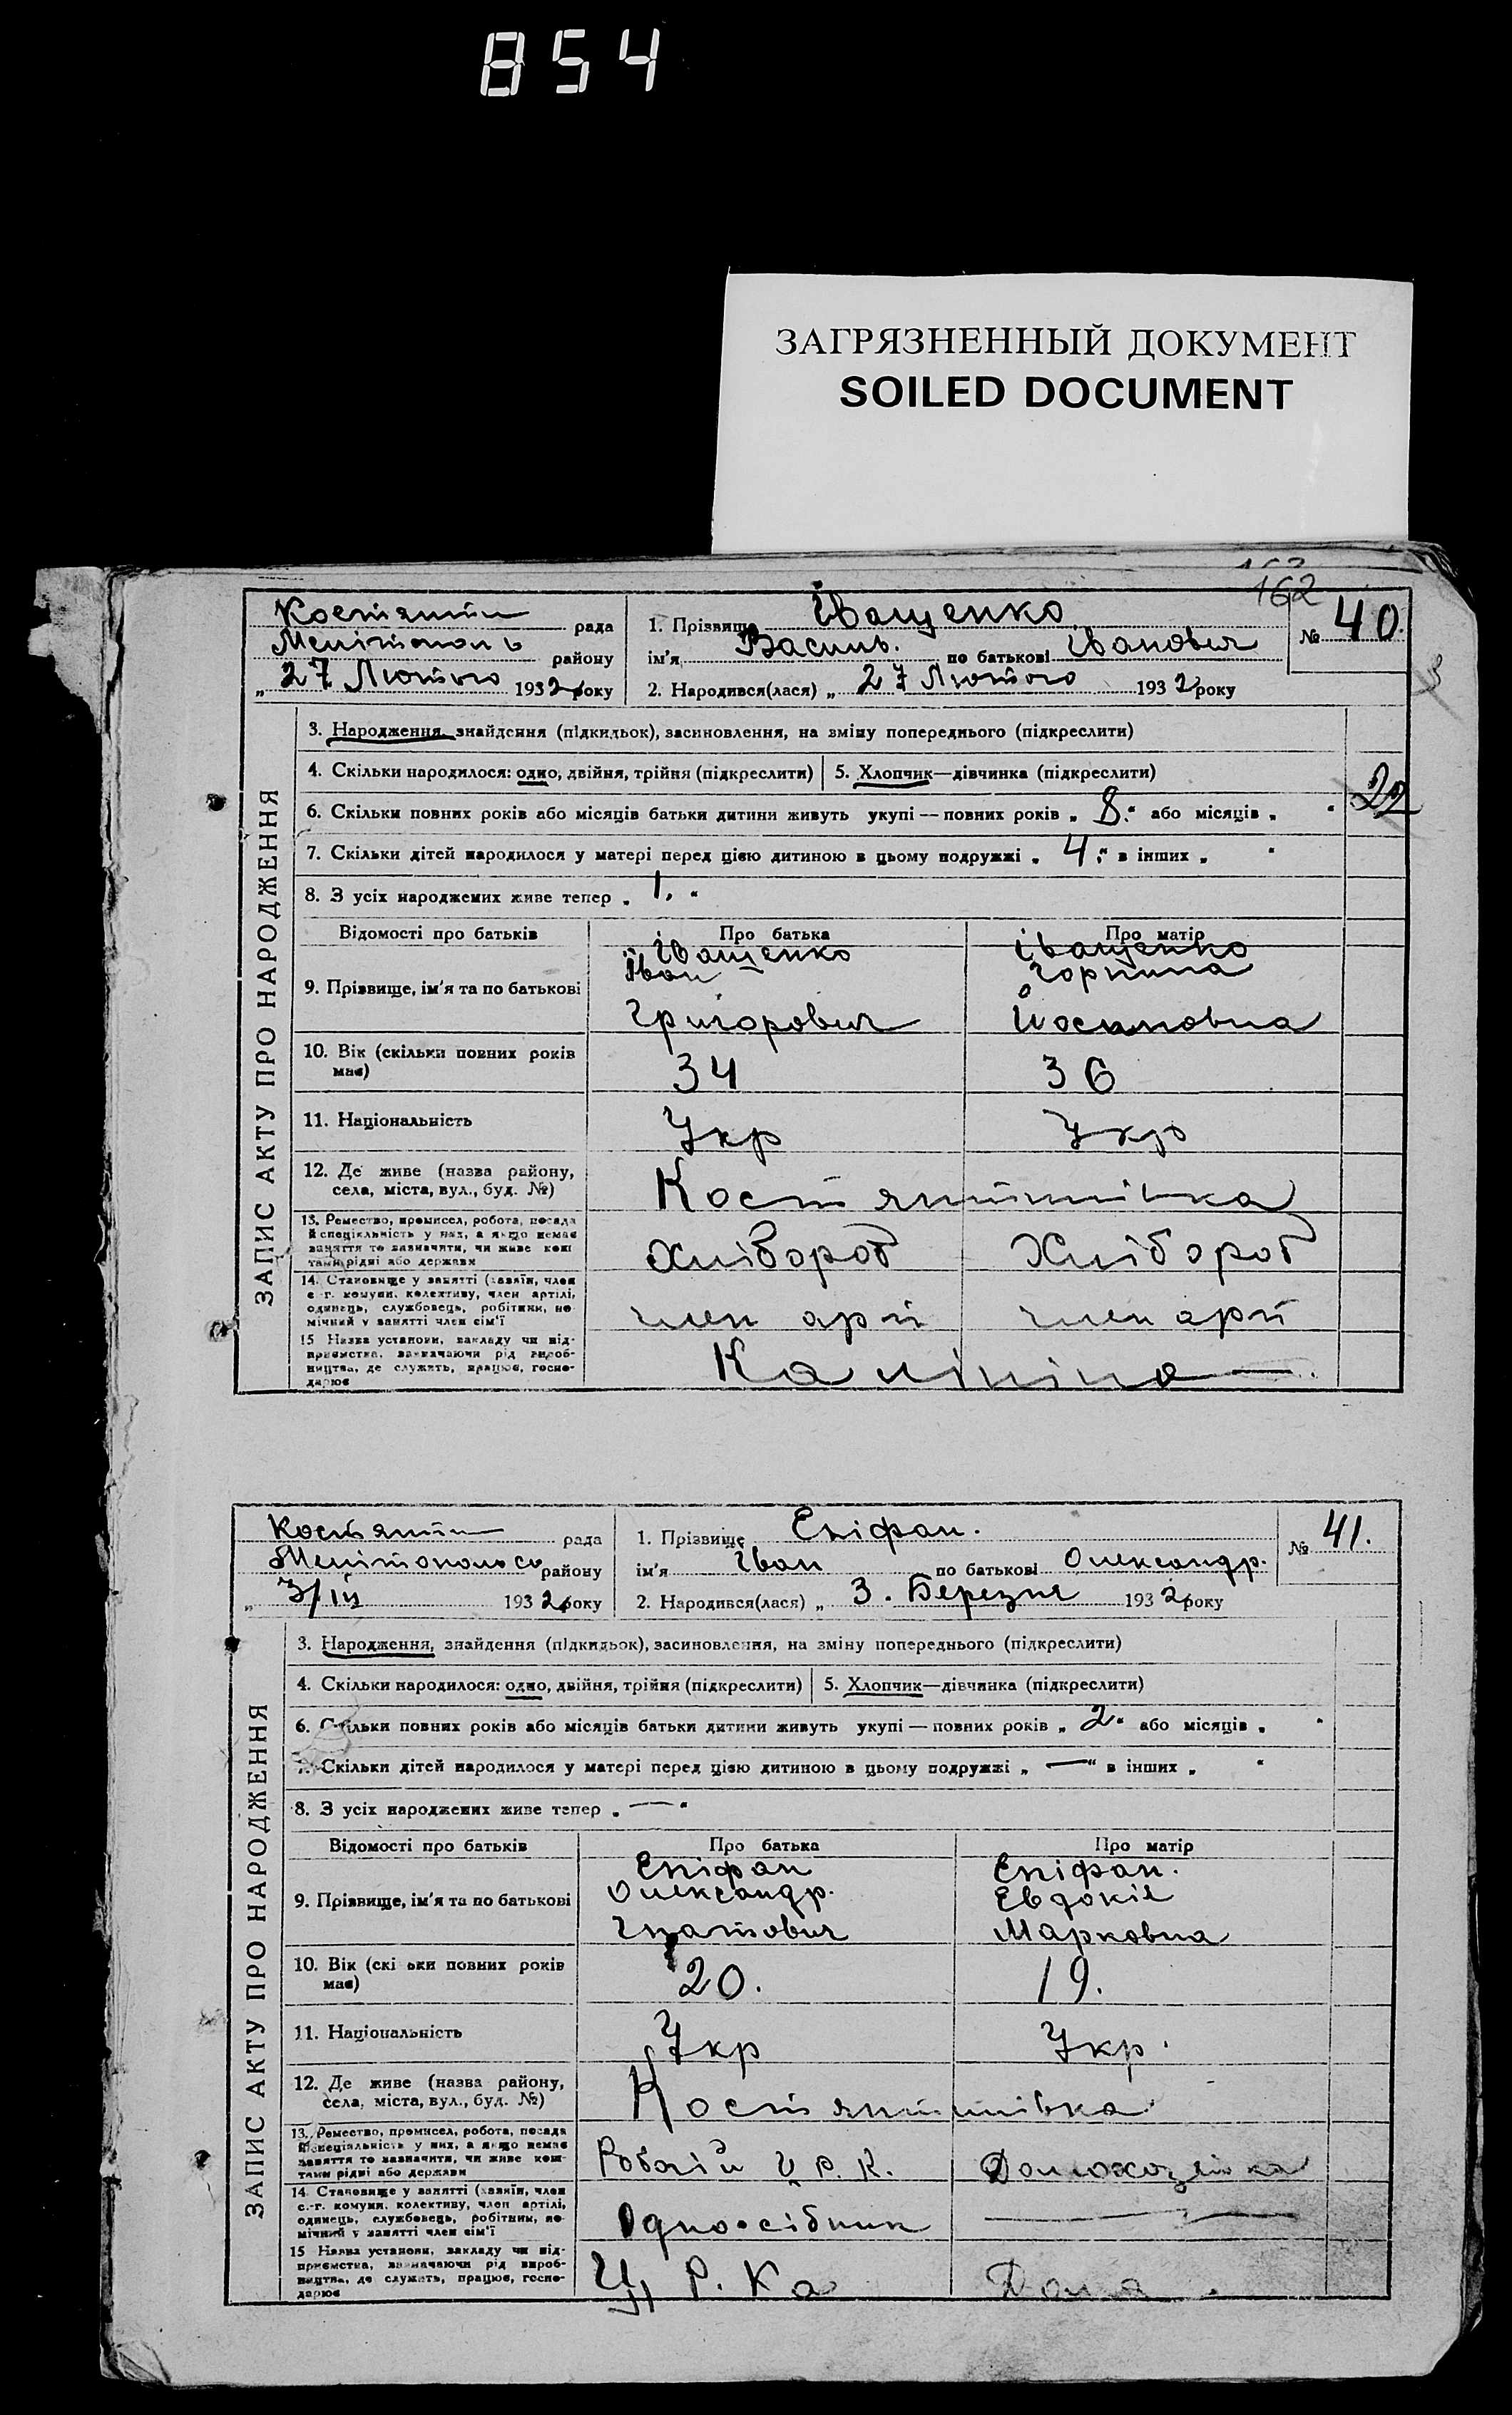 854
ЗАГРЯЗНЕННЫЙ ДОКУМЕНТ
SOILED DOCUMENT
162
Костянти рада
Мелітополь району
„ 27 Лютого 1932 року
1. Прізвище Іващенко
ім'я Василь. по батькові Іванович
2. Народився(лася) „ 27 Лютого 1932 року
№ 40.
ЗАПИС АКТУ ПРО НАРОДЖЕННЯ
3. Народження, знайдення (підкидьок), засиновлення, на зміну попереднього (підкреслити)
4. Скільки народилося: одно, двійня, трійня (підкреслити)
5. Хлопчик—дівчинка (підкреслити)
22
6. Скільки повних років або місяців батьки дитини живуть укупі — повних років „ 8. “ або місяців „ “
7. Скільки дітей народилося у матері перед цією дитиною в цьому подружжі „ 4. “ в інших „ “
8. З усіх народжених живе тепер „ 1. “
Відомості про батьків
Про батька
Про матір
9. Прізвище, ім'я та по батькові
Іващенко
Іван
Григорович
Іващенко
Горпина
Йосиповна
10. Вік (скільки повних років має)
34
36
11. Національність
Укр
Укр
12. Де живе (назва району,
села, міста, вул., буд. №)
Костянтинівка
13. Ремество, промисел, робота, посада
й спеціяльність у них, а якщо немає
заняття то зазначити, чи живе кош-
тами рідні або держави
Хлібороб
Хлібороб
14. Становище у занятті (хазяїн, член
с.-г. комуни, колективу, член артілі,
одинець, службовець, робітник, по-
мічний у занятті член сім'ї
член арті
член арті
15 Назва установи, закладу чи під-
приємства, зазначаючи рід вироб-
ництва, де служить, працює, госпо-
дарює
Калініна
Костянти рада
Мелітопольсь району
„ 3/III 1932 року
1. Прізвище Епіфан.
ім'я Іван по батькові Олександр.
2. Народився(лася) „ 3. Березня 1932 року
№ 41.
ЗАПИС АКТУ ПРО НАРОДЖЕННЯ
3. Народження, знайдення (підкидьок), засиновлення, на зміну попереднього (підкреслити)
4. Скільки народилося: одно, двійня, трійня (підкреслити)
5. Хлопчик—дівчинка (підкреслити)
6. Скільки повних років або місяців батьки дитини живуть укупі — повних років „ 2 “ або місяців „ “
7. Скільки дітей народилося у матері перед цією дитиною в цьому подружжі „ — “ в інших „ “
8. З усіх народжених живе тепер „ — “
Відомості про батьків
Про батька
Про матір
9. Прізвище, ім'я та по батькові
Епіфан
Олександр.
Гнатович
Епіфан.
Евдокія
Марковна
10. Вік (скі ьки повних років
має)
20.
19.
11. Національність
Укр
Укр.
12. Де живе (назва району,
села, міста, вул., буд. №)
Костянтинівка
13. Ремество, промисел, робота, посада
й спеціяльність у них, а якщо немає
заняття то зазначити, чи живе кош-
тами рідні або держави
Робочій Ц. Р. К.
Домохозяйка
14. Становище у занятті (хазяїн, член
с.-г. комуни, колективу, член артілі,
одинець, службовець, робітник, по-
мічний у занятті член сім'ї
Одноосібник
15 Назва установи, закладу чи під-
приємства, зазначаючи рід вироб-
ництва, де служить, працює, госпо-
дарює
Ц. Р. Ка
Дома.